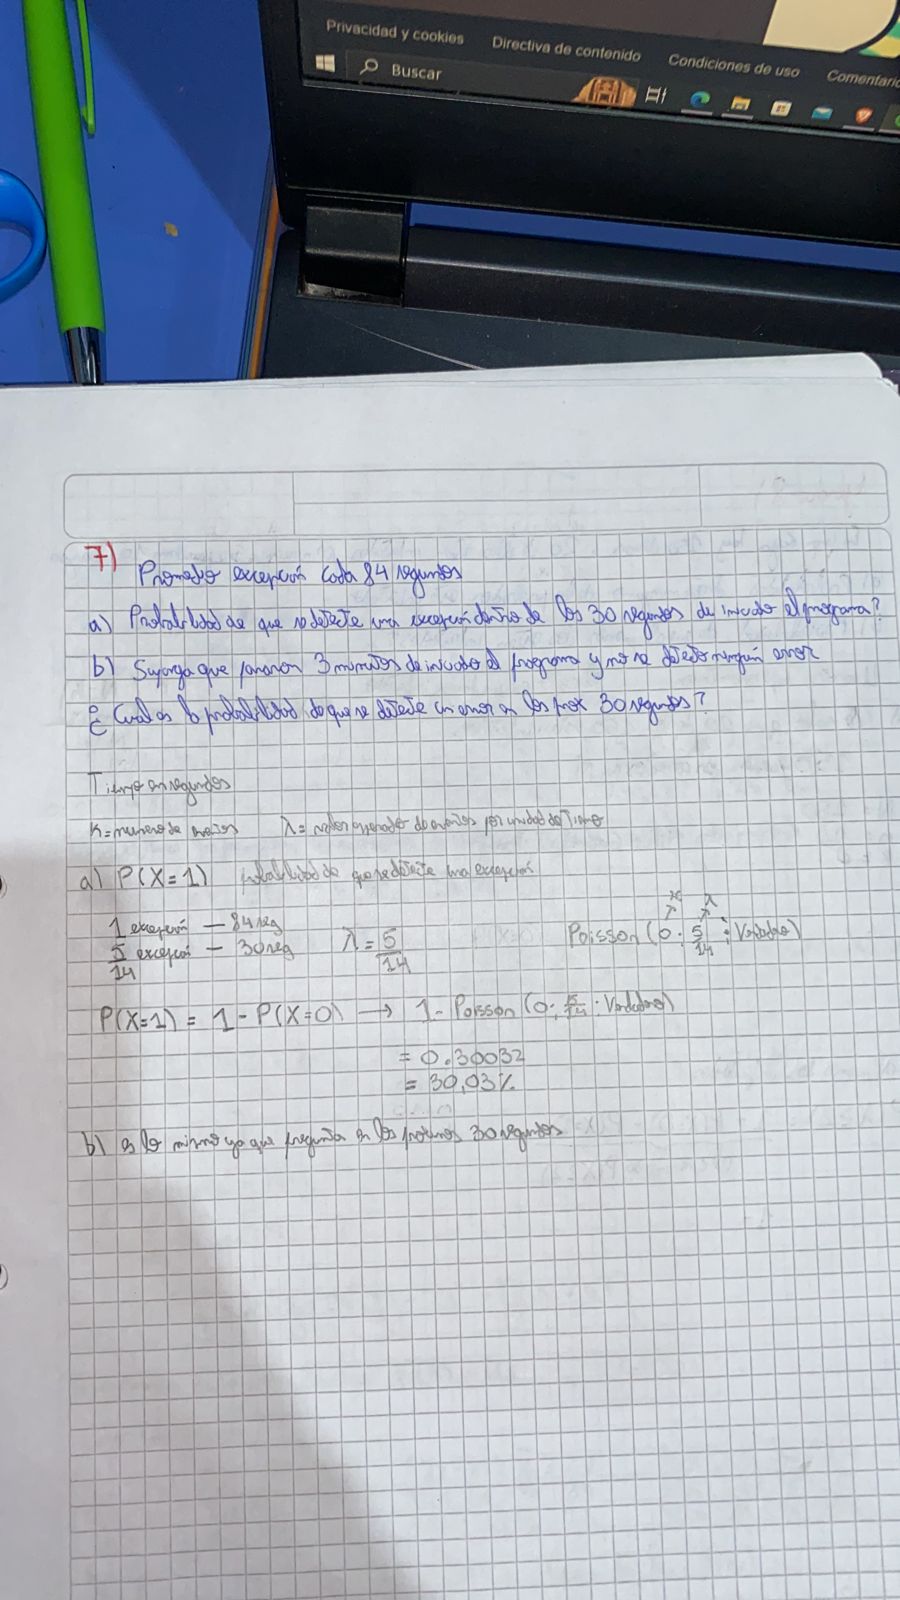 Privacidad y cookies Directiva de contenido Condiciones de uso Comentario
Buscar
7)
Promedio excepción Cada 84 segundos
a) Probabilidad de que se detecte una excepción dentro de los 30 segundos de iniciado el programa?
b) Suponga que pasaron 3 minutos de iniciado el programa y no se detecto ningún error
¿ Cual es la probabilidad de que se detecte un error en los prox 30 segundos?
Tiempo en segundos
K = numero de λ = valor esperado de eventos por unidad de Tiempo
a) P(X=1) probabilidad de que se detecte una excepción
1 excepción — 84 seg
5/14 excepción — 30 seg λ = 5/14
x λ
Poisson (0; 5/14; Verdadero)
P(X=1) = 1 - P(X=0) → 1 - Poisson (0; 5/14; Verdadero)
= 0.30032
= 30,03%
b) es lo mismo ya que pregunta en los proximos 30 segundos